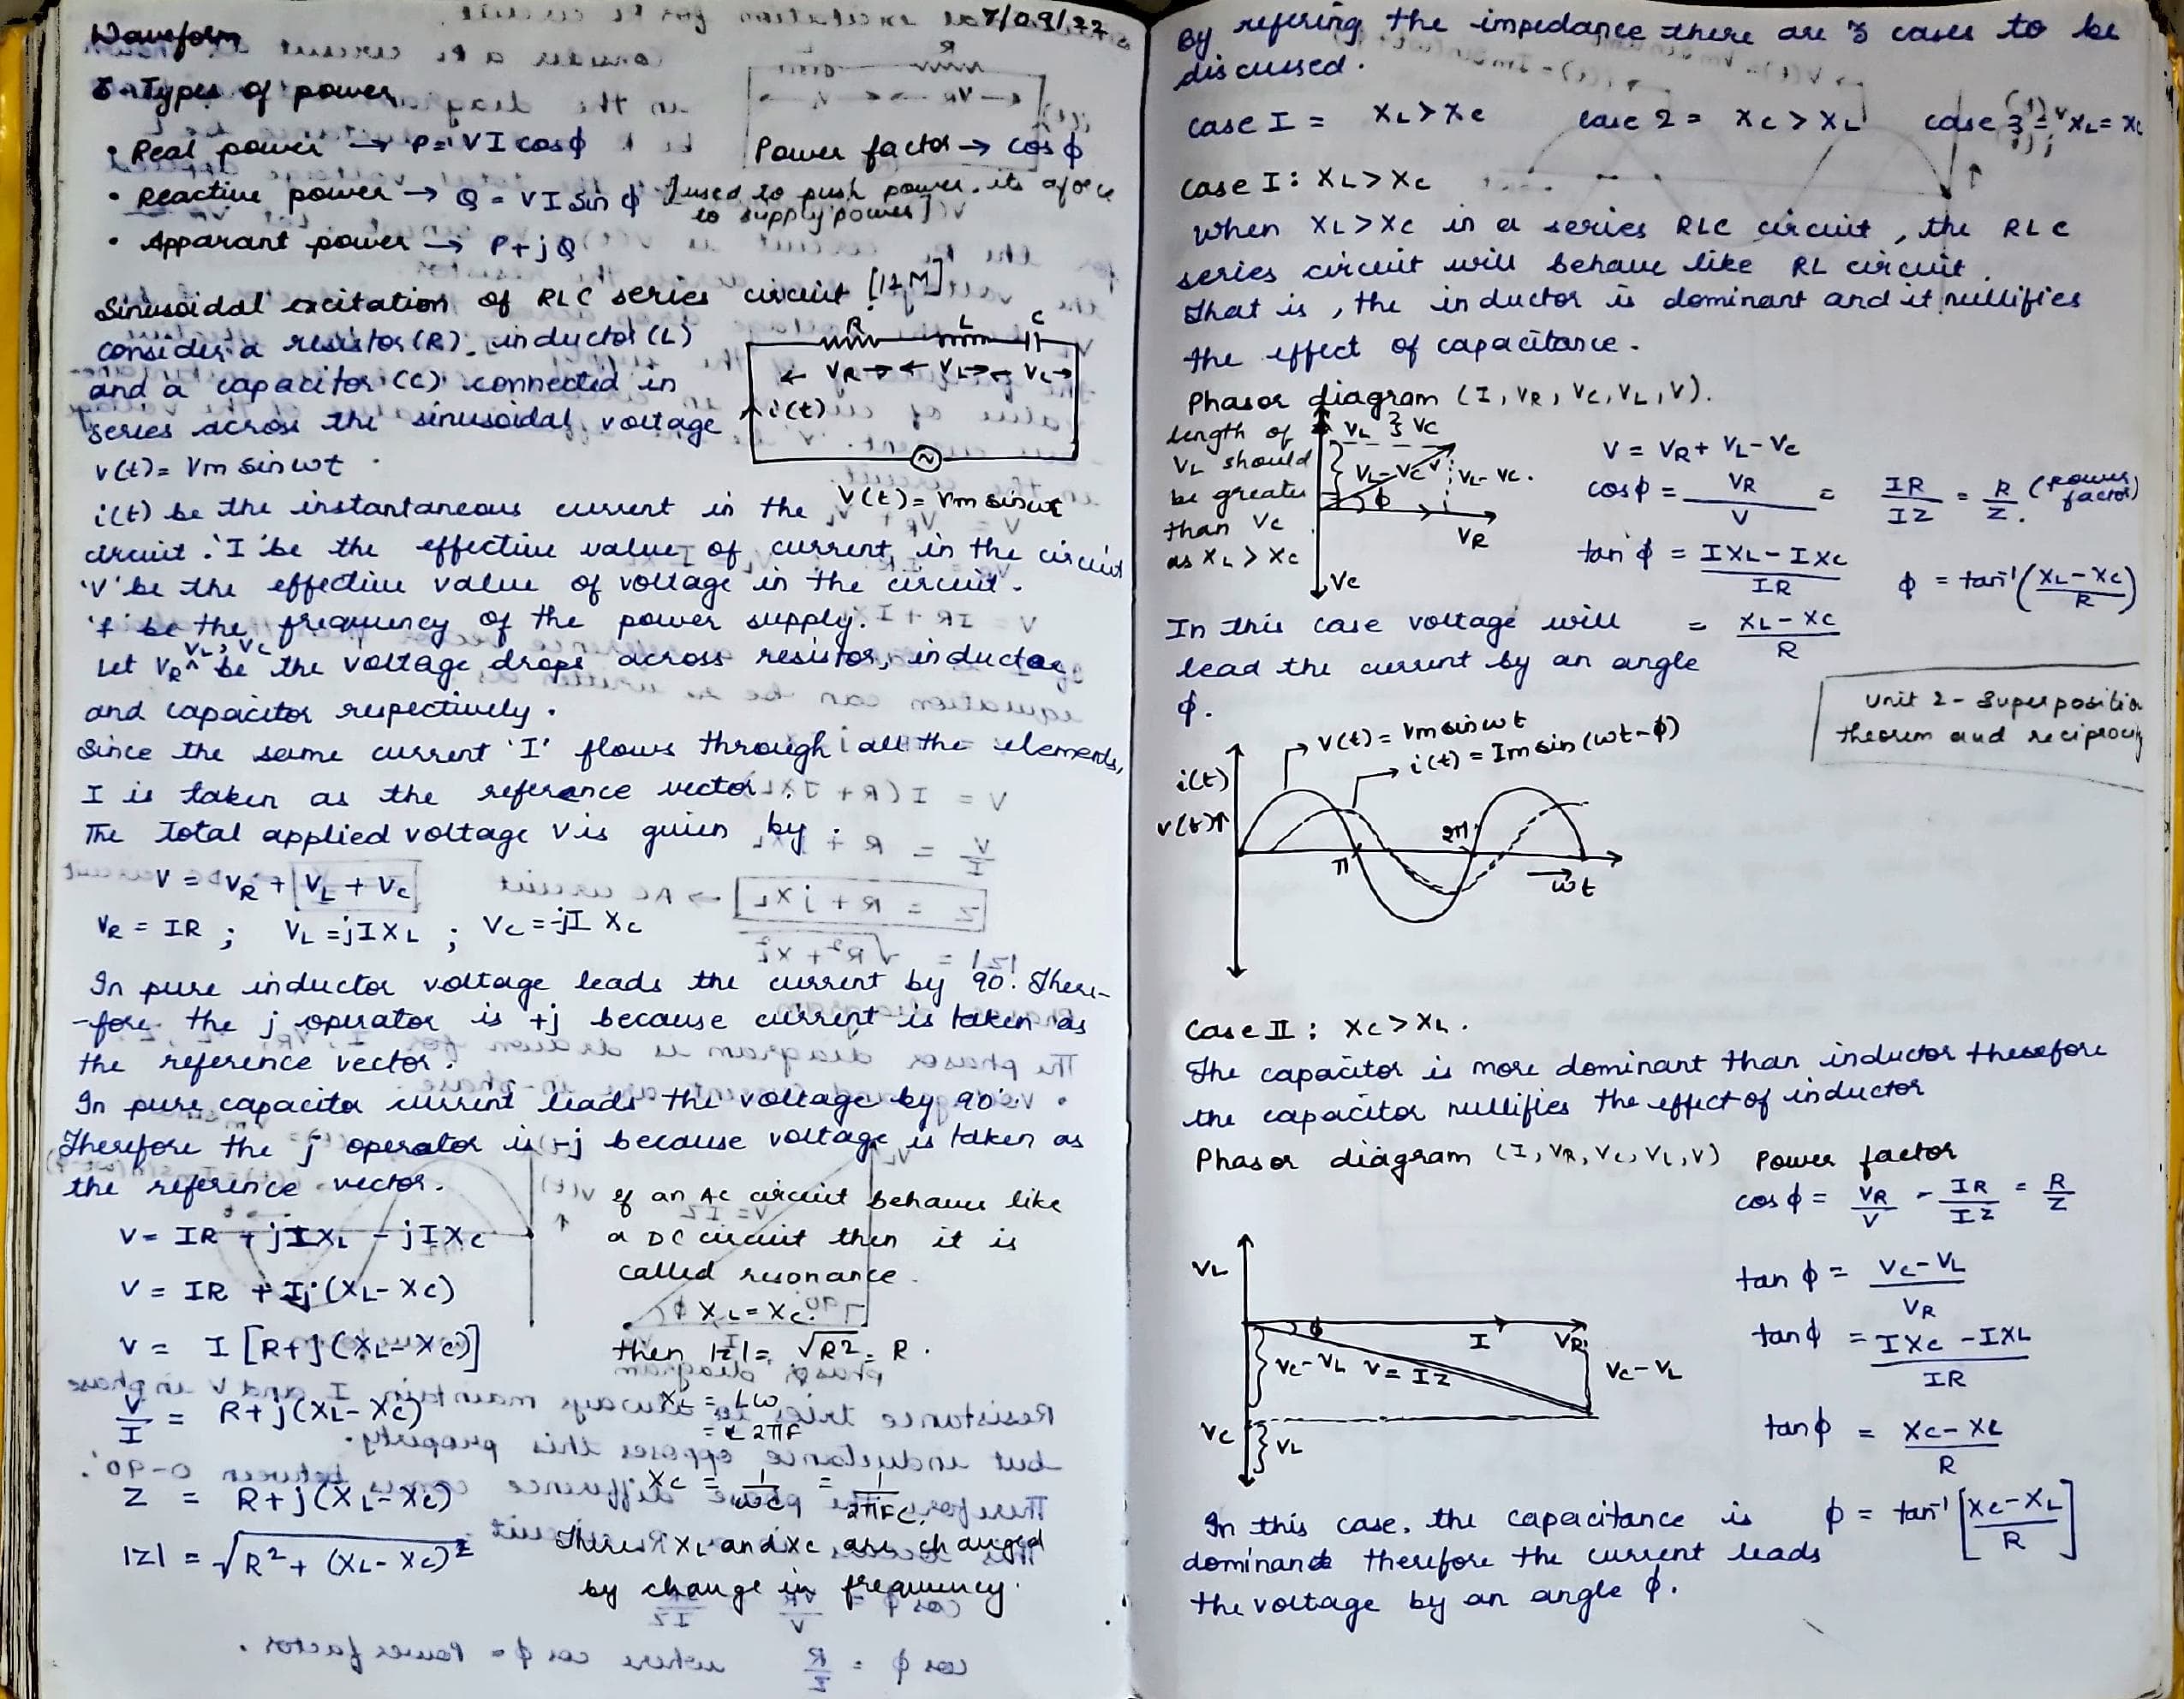 Waveform
Types of power
• Real power → P = VI cosϕ
Power factor → cos ϕ
• Reactive power → Q = VI sin ϕ
[used to push power. its a force
to supply power]
• Apparant power → P+jQ
Sinusoidal excitation of RLC series circuit [12M]
consider a resistor (R), inductor (L)
and a capacitor (C) connected in
series across the sinusoidal voltage
v(t) = Vm sin ωt
R L C
← VR → ← VL → ← VC →
i(t)
V(t) = Vm sinωt
i(t) be the instantaneous current in the
circuit. 'I' be the effective value of current in the circuit
'V' be the effective value of voltage in the circuit.
'f be the frequency of the power supply.
VL, VC
Let VR ^ be the voltage drops across resistor, inductor
and capacitor respectively.
Since the same current 'I' flows through all the elements,
I is taken as the reference vector.
The Total applied voltage V is given by.
V = VR + VL + Vc
VR = IR ; VL = jIXL ; Vc = -jI Xc
In pure inductor voltage leads the current by 90°. There-
-fore the j operator is +j because current is taken as
the reference vector.
In pure capacito current leads the voltage by 90°.
Therefore the j operator is -j because voltage is taken as
the reference vector.
V = IR + jIXL - jIXc
V = IR + Ij (XL - Xc)
V = I [R+j (XL - Xc)]
V/I = R+j (XL - Xc)
Z = R+j (XL - Xc)
|Z| = √R² + (XL - Xc)²
If an AC circuit behaves like
a DC circuit then it is
called resonance.
XL = Xc.
then |Z| = √R² = R.
XL = Lω
= L 2πF
Xc = 1/ωC = 1/2πFC.
There XL and Xc are changed
by change in frequency.
By refering the impedance there are 3 cases to be
discussed.
case I = XL > Xc case 2 = Xc > XL case 3 = XL = Xc
case I : XL > Xc
When XL > Xc in a series RLC circuit, the RLC
series circuit will behave like RL circuit.
That is, the inductor is dominant and it nullifies
the effect of capacitance.
Phasor diagram (I, VR, VC, VL, V).
length of
VL should
be greater
than Vc
as XL > Xc
VL } VC
VL-VC V VL-VC.
ϕ
VR
VC
V = VR + VL - Vc
cosϕ = VR/V = IR/IZ = R/Z. (Power factor)
tan ϕ = IXL - IXC/IR
= XL - XC/R
ϕ = tan⁻¹(XL-XC/R)
In this case voltage will
lead the current by an angle
ϕ.
Unit 2 - Superposition
theorem and reciprocity
V(t) = Vm sin ωt
i(t) = Im sin (ωt - ϕ)
i(t)
v(t)↑
π 2π
→ ωt
Case II : Xc > XL.
The capacitor is more dominant than inductor therefore
the capacitor nullifies the effect of inductor
Phasor diagram (I, VR, VC, VL, V) Power factor
cosϕ = VR/V = IR/IZ = R/Z
VL
ϕ I VR
VC-VL V = IZ VC-VL
VC } VL
tan ϕ = VC-VL/VR
tanϕ = IXC - IXL/IR
tanϕ = XC - XL/R
ϕ = tan⁻¹ [XC-XL/R]
In this case, the capacitance is
dominant therefore the current leads
the voltage by an angle ϕ.